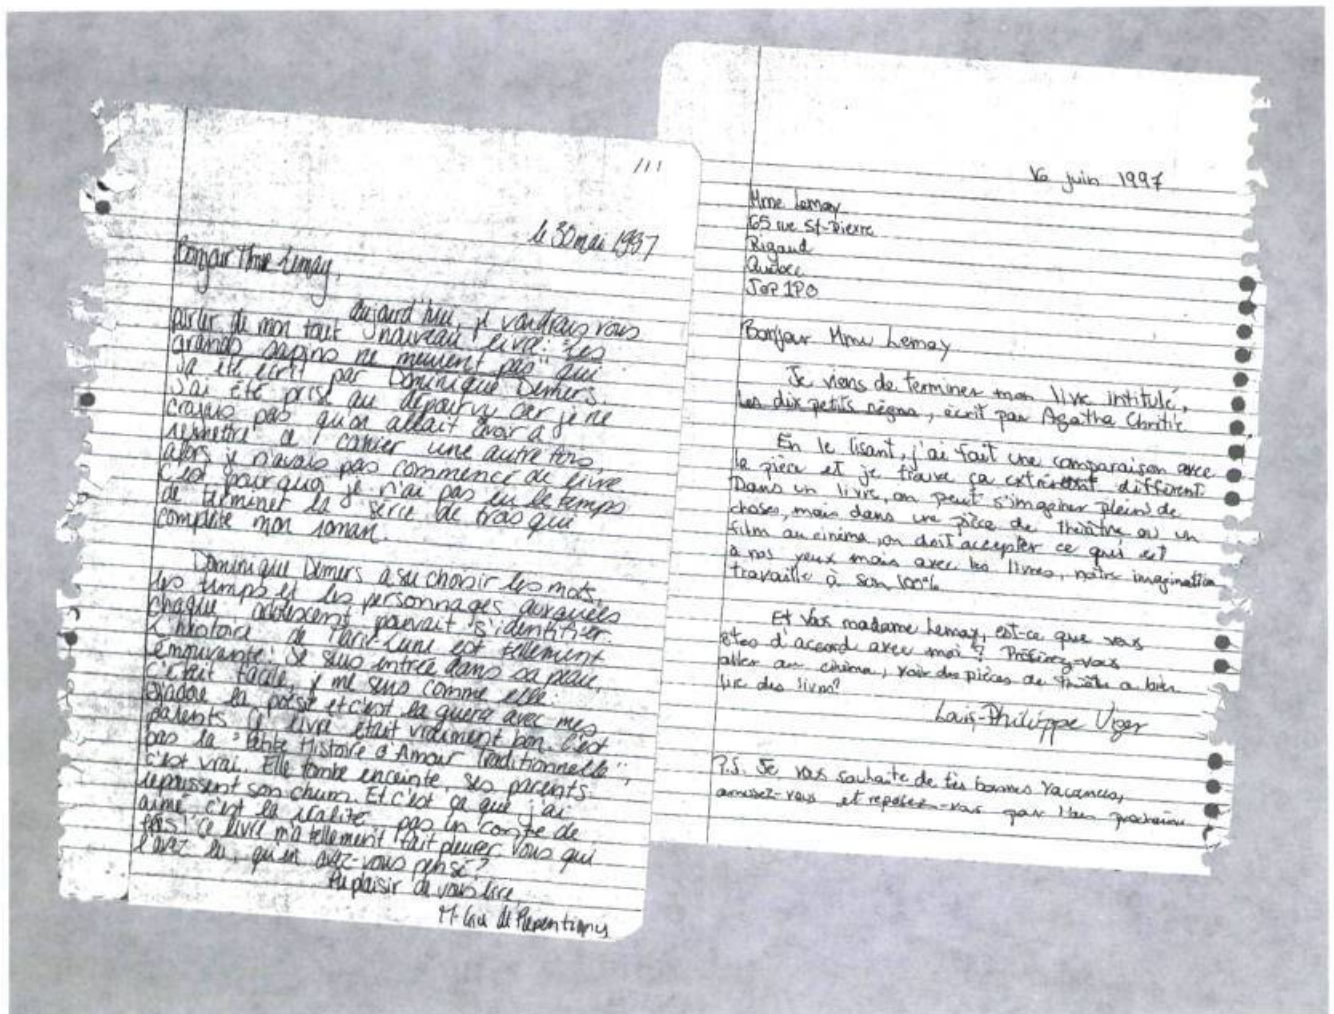 111
le 30 mai 1997
Bonjour Mme Lemay,
aujourd'hui, je voudrais vous
parler de mon tout nouveau livre: "Les
grands sapins ne meurent pas" qui
a été écrit par Dominique Demers.
J'ai été prise au dépourvu car je ne
croyais pas qu'on allait avoir à
remettre ce cahier une autre fois,
alors je n'avais pas commencé de livre
c'est pourquoi je n'ai pas eu le temps
de terminer la série de trois qui
complète mon roman.
Dominique Demers a su choisir les mots,
les temps et les personnages auxquels
chaque adolescent pouvait s'identifier
L'histoire de Marie-Lune est tellement
émouvante! Je suis entrée dans sa peau,
c'était facile je me sens comme elle:
j'adore la poésie et c'est la guerre avec mes
parents Ce livre était vraiment bon. C'est
pas la "Petite Histoire d'Amour Traditionnelle",
c'est vrai. Elle tombe enceinte, ses parents
repoussent son chum. Et c'est ça que j'ai
aimé c'est la réalité pas un conte de
fées! Ce livre m'a tellement fait pleurer. Vous qui
l'avez lu, qu'en avez-vous pensé?
Au plaisir de vous lire,
de Repentigny
16 juin 1997
Mme Lemay
65 rue St-Pierre
Rigaud
Québec
J0P 1P0
Bonjour Mme Lemay
Je viens de terminer mon livre intitulé,
Les dix petits nègres, écrit par Agatha Christie
En le lisant, j'ai fait une comparaison avec
la pièce et je trouve ça différent
Dans un livre, on peut s'imaginer plein de
choses, mais dans une pièce de théâtre ou un
film au cinéma, on doit accepter ce qui est
à nos yeux mais avec les livres, notre imagination
travaille à son 100%
Et vous madame Lemay, est-ce que vous
êtes d'accord avec moi? Préférez-vous
aller au cinéma, voir des pièces de théâtre ou bien
lire des livres?
Louis-Philippe Viger
P.S. Je vous souhaite de très bonnes vacances,
amusez-vous et reposez-vous pour l'an prochain